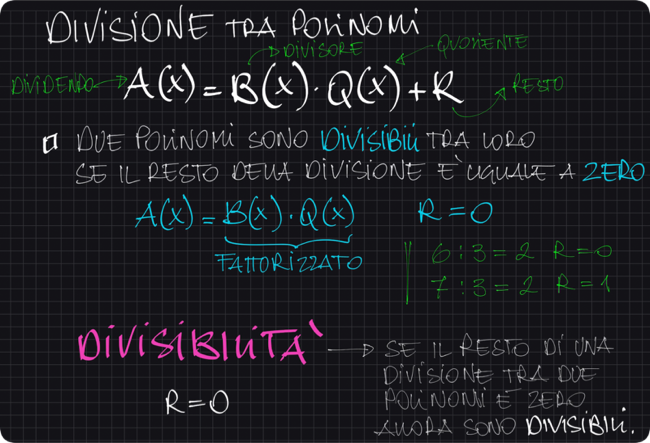 DIVISIONE TRA POLINOMI
DIVISORE
QUOZIENTE
DIVIDENDO
A(x) = B(x) · Q(x) + R
RESTO
DUE POLINOMI SONO DIVISIBILI TRA LORO
SE IL RESTO DELLA DIVISIONE E' UGUALE A ZERO
A(x) = B(x) · Q(x) R = 0
FATTORIZZATO
6 : 3 = 2 R = 0
7 : 3 = 2 R = 1
DIVISIBILITA'
SE IL RESTO DI UNA
DIVISIONE TRA DUE
POLINOMI E' ZERO
ALLORA SONO DIVISIBILI.
R = 0